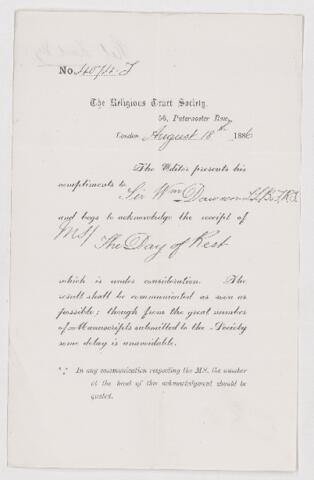 No. 14074-J
The Religious Tract Society.
56, Paternoster Row,
London August 18th 1886
The Editor presents his
compliments to Sir Wm Dawson
and begs to acknowledge the receipt of
MS/ The Day of Rest
which is under consideration. The
result shall be communicated as soon as
possible; though from the great number
of Manuscripts submitted to the Society
some delay is unavoidable.
*** In any communication respecting the MS. the number
at the head of this acknowledgment should be
quoted.